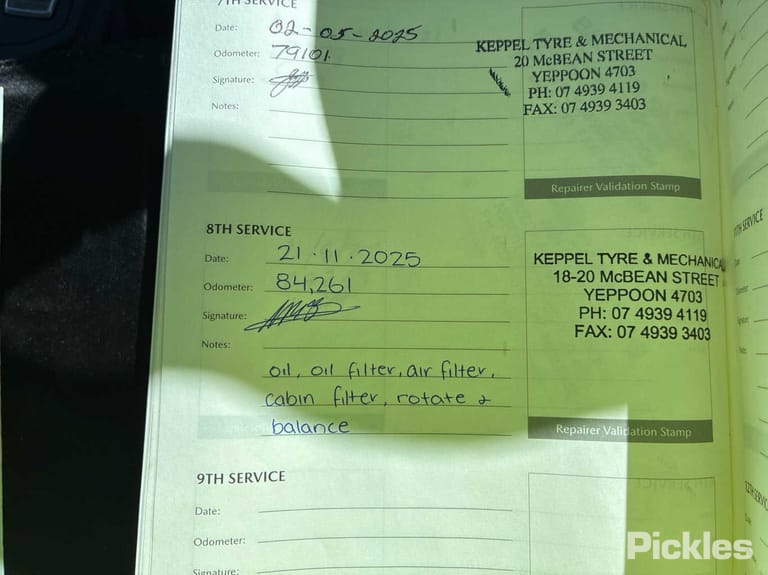 7TH SERVICE
Date: 02-05-2025
Odometer: 79101.
Signature:
Notes:
KEPPEL TYRE & MECHANICAL
20 McBEAN STREET
YEPPOON 4703
PH: 07 4939 4119
FAX: 07 4939 3403
Repairer Validation Stamp
8TH SERVICE
Date: 21.11.2025
Odometer: 84,261
Signature:
Notes:
oil, oil filter, air filter,
cabin filter, rotate &
balance
KEPPEL TYRE & MECHANICAL
18-20 McBEAN STREET
YEPPOON 4703
PH: 07 4939 4119
FAX: 07 4939 3403
Repairer Validation Stamp
9TH SERVICE
Date:
Odometer:
Signature:
11TH SERVICE
Pickles